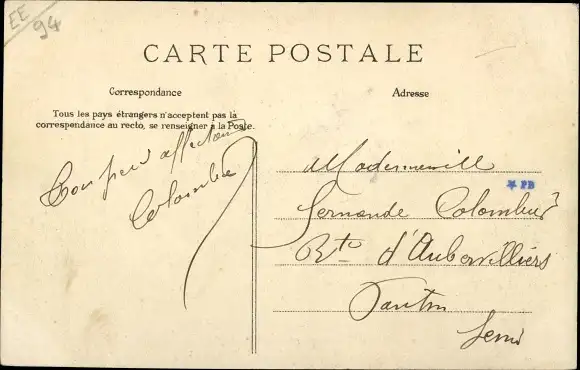 EE
94
CARTE POSTALE
Correspondance
Tous les pays étrangers n'acceptent pas la
correspondance au recto, se renseigner à la Poste.
Adresse
Ton père affection
Colombu
Mademoiselle
★ PB
Fernande Colombu
Rte d'Aubervilliers
Pantin
Seine